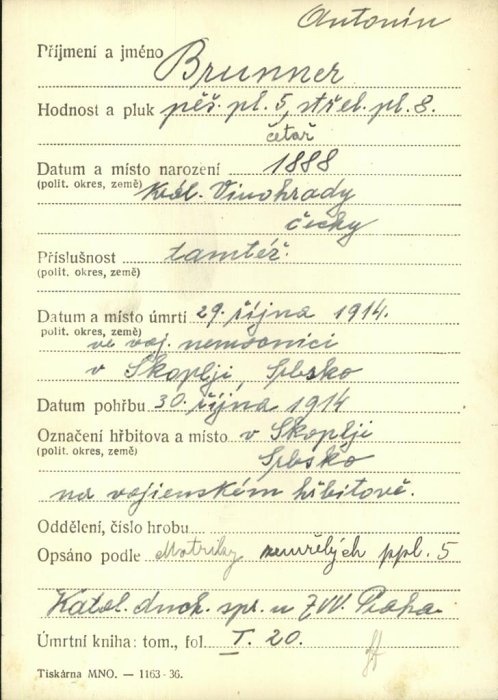 Antonín
Příjmení a jméno Brunner
Hodnost a pluk pěš. pl. 5, střel. pl. 8.
četař
Datum a místo narození 1888
(polit. okres, země) Král. Vinohrady
čechy
Příslušnost tamtéž.
(polit. okres, země)
Datum a místo úmrtí 29. října 1914.
polit. okres, země)
ve voj. nemocnici
v Skoplji, Srbsko
Datum pohřbu 30. října 1914
Označení hřbitova a místo v Skoplji
(polit. okres, země) Srbsko
na vojenském hřbitově.
Oddělení, číslo hrobu
Opsáno podle Matriky zemřelých ppl. 5
Katol. duch. spr. u ZVV. Praha.
Úmrtní kniha: tom., fol. I. 20.
Tiskárna MNO. — 1163-36.